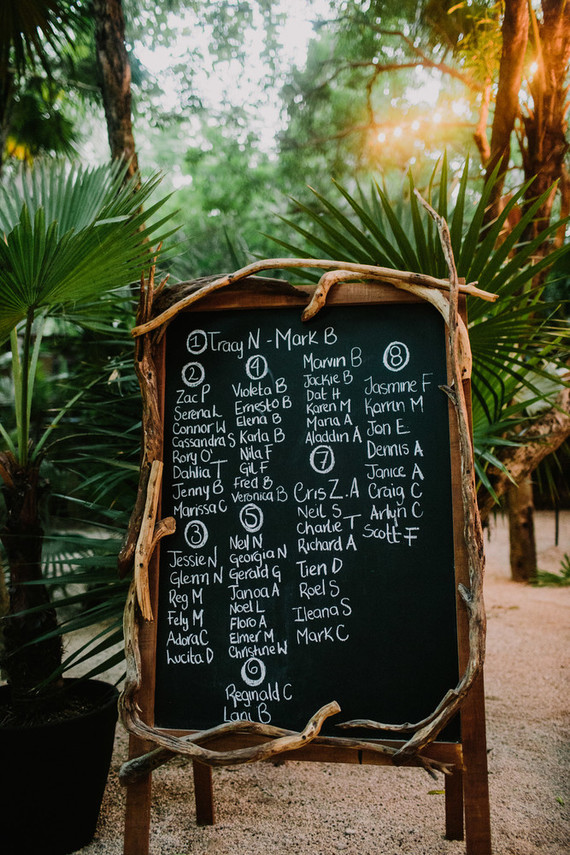 ① Tracy N - Mark B
②
Zac P
Serena L
Connor W
Cassandra S
Rory O'
Dahlia T
Jenny B
Marissa C
③
Jessie N
Glenn N
Reg M
Fely M
Adora C
Lucita D
④
Violeta B
Ernesto B
Elena B
Karla B
Nila F
Gil F
Fred B
Veronica B
⑤
Neil N
Georgia N
Gerald G
Janoa A
Noel L
Floro A
Elmer M
Christine W
⑥
Reginald C
Lani B
Marvin B
Jackie B
Dat H
Karen M
Maria A
Aladdin A
⑦
Cris Z.A
Neil S
Charlie T
Richard A
Tien D
Roel S
Ileana S
Mark C
⑧
Jasmine F
Karrin M
Jon E
Dennis A
Janice A
Craig C
Arlyn C
Scott F